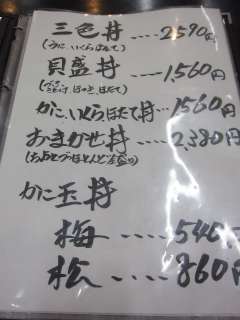 三色丼....2,590円
(うに、いくら、ほたて)
貝盛丼....1,560円
ほっき、ほたて)
かに、いくら、ほたて丼...1560円
おまかせ丼....2,380円
かに玉丼
梅....540円
松.....860円